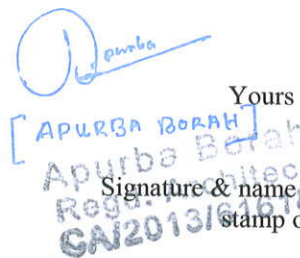 Apurba
Yours
[APURBA BORAH]
Apurba Borah
Signature & name
Regd. Architec
stamp o
CA/2013/6161